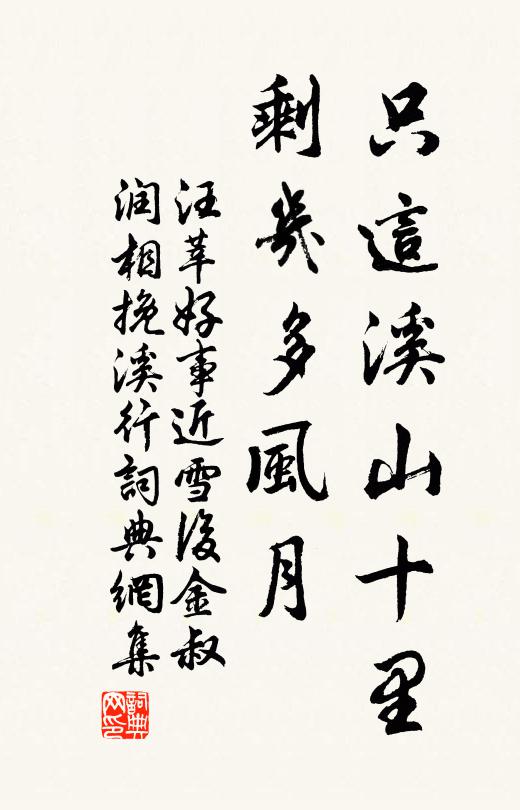 只這溪山十里
剩幾多風月
汪莘好事近雪後金叔
润相挽溪行詞典網集
詞典网印